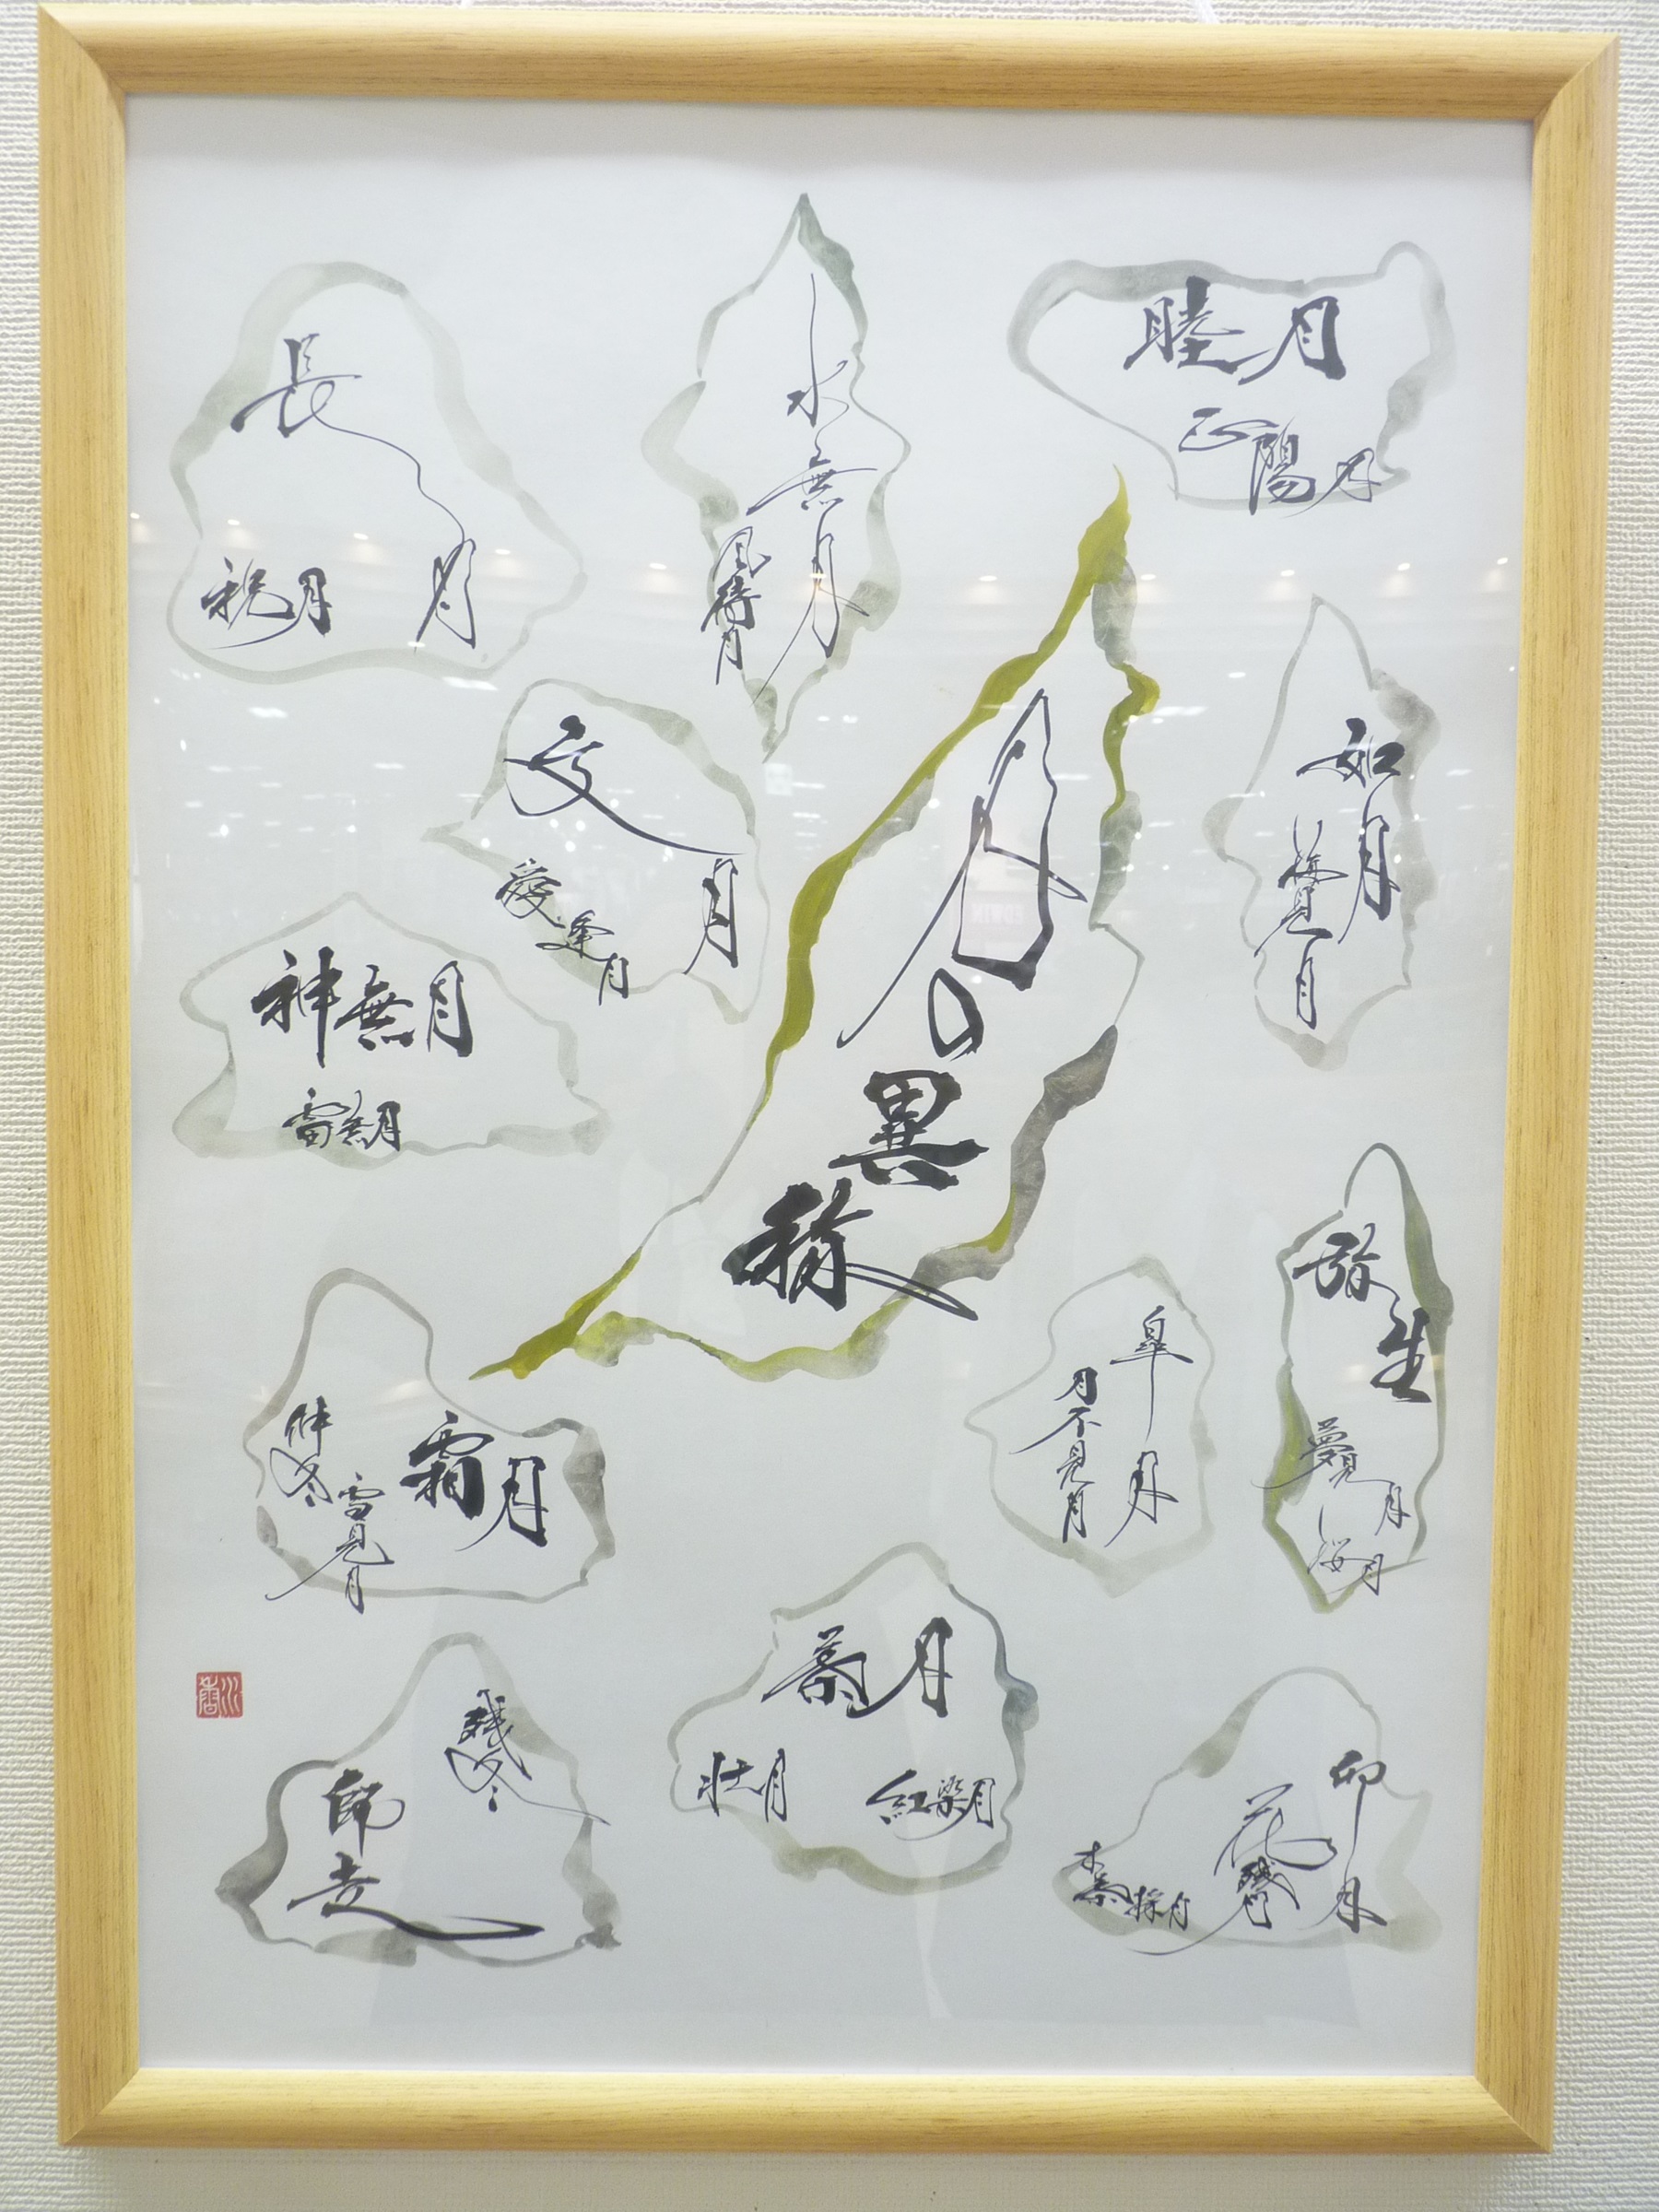 月の異称
睦月
正陽月
如月
梅見月
弥生
夢見月
桜月
卯月
花残月
木葉採月
皐月
月不見月
水無月
風待月
文月
愛逢月
葉月
壮月
紅染月
長月
祝月
神無月
雷無月
霜月
仲冬
雪見月
師走
残冬